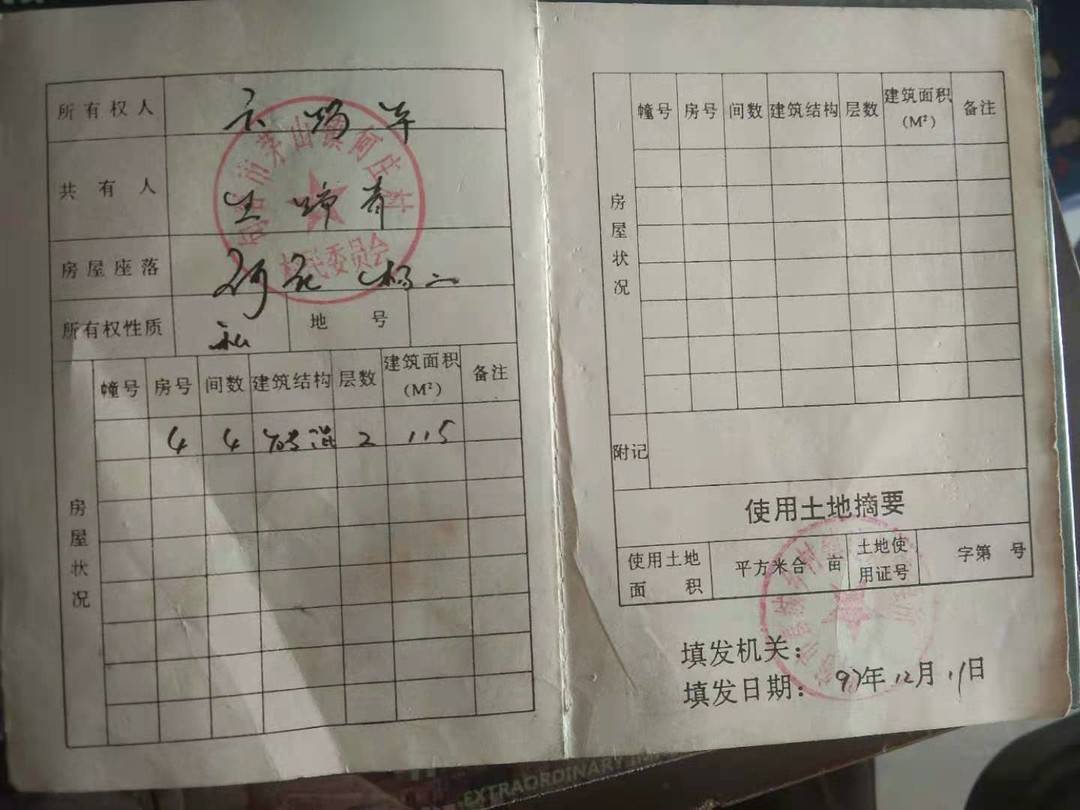 所有权人
共有人
房屋座落
所有权性质 私 地号
房屋状况
幢号 房号 间数 建筑结构 层数 建筑面积(M²) 备注
4 4 砖混 2 115
村民委员会
幢号 房号 间数 建筑结构 层数 建筑面积(M²) 备注
房屋状况
附记
使用土地摘要
使用土地面积 平方米合 亩 土地使用证号 字第 号
填发机关:
填发日期: 97年12月11日
EXTRAORDINARY